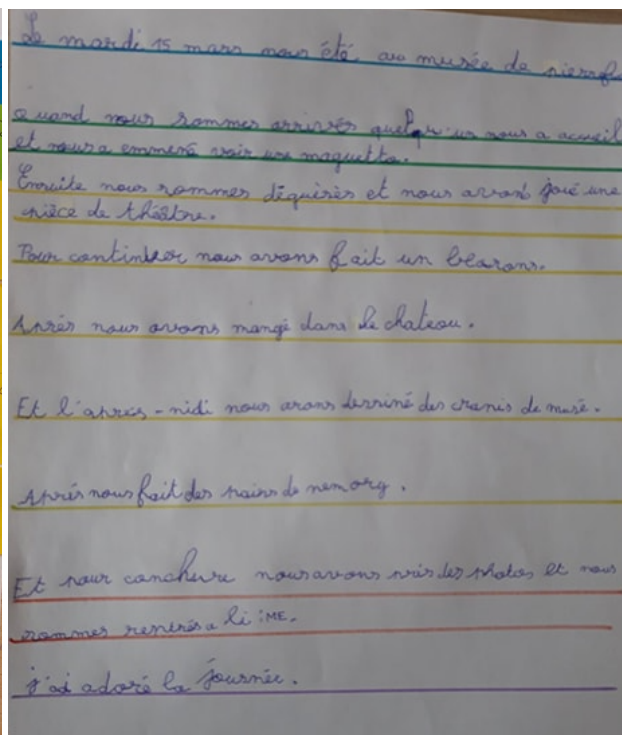 Le mardi 15 mars nous été au musée de pierref
Quand nous sommes arrivés quelqu'un nous a accueil
et nous a emmené voir une maquette.
Ensuite nous sommes déguisés et nous avons joué une
pièce de théâtre.
Pour continuer nous avons fait un
Après nous avons mangé dans le chateau.
Et l'après-midi nous avons dessiné des de musé.
Après nous fait des pairs de memory.
Et pour conclure nous avons pris des photos et nous
sommes rentrés a l'IME.
j'ai adoré la journée.